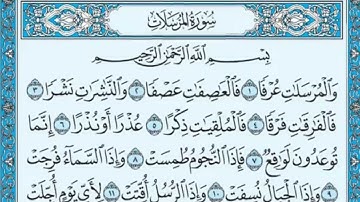 سُورَةُ المُرْسَلَات
بِسْمِ ٱللَّهِ ٱلرَّحْمَٰنِ ٱلرَّحِيمِ
وَٱلْمُرْسَلَٰتِ عُرْفًا ١ فَٱلْعَٰصِفَٰتِ عَصْفًا ٢ وَٱلنَّٰشِرَٰتِ نَشْرًا ٣
فَٱلْفَٰرِقَٰتِ فَرْقًا ٤ فَٱلْمُلْقِيَٰتِ ذِكْرًا ٥ عُذْرًا أَوْ نُذْرًا ٦ إِنَّمَا
تُوعَدُونَ لَوَٰقِعٌ ٧ فَإِذَا ٱلنُّجُومُ طُمِسَتْ ٨ وَإِذَا ٱلسَّمَآءُ فُرِجَتْ
٩ وَإِذَا ٱلْجِبَالُ نُسِفَتْ ١٠ وَإِذَا ٱلرُّسُلُ أُقِّتَتْ ١١ لِأَىِّ يَوْمٍ أُجِّلَتْ